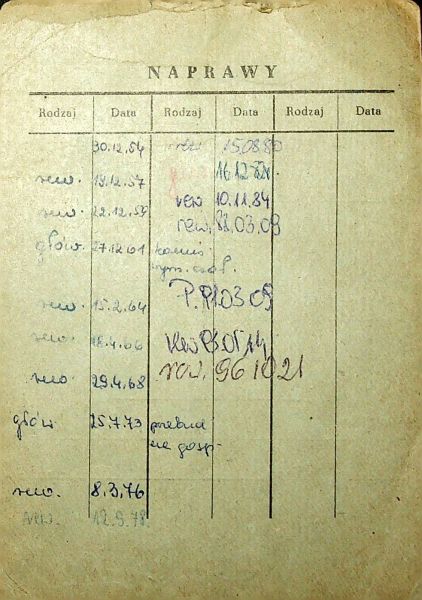 NAPRAWY
Rodzaj Data Rodzaj Data Rodzaj Data
30.12.54 rew. 15.08.80
rew. 19.12.57 16.12.82
rew. 22.12.59 rew 10.11.84
rew. 88.03.09
głów. 27.12.61
rew. 15.2.64 P. 91.03.09
rew. 18.4.66 rew 93.05.14
rew 29.4.68 rew. 96 10 21
głów 25.7.73
rew. 8.3.76
rew. 12.9.78